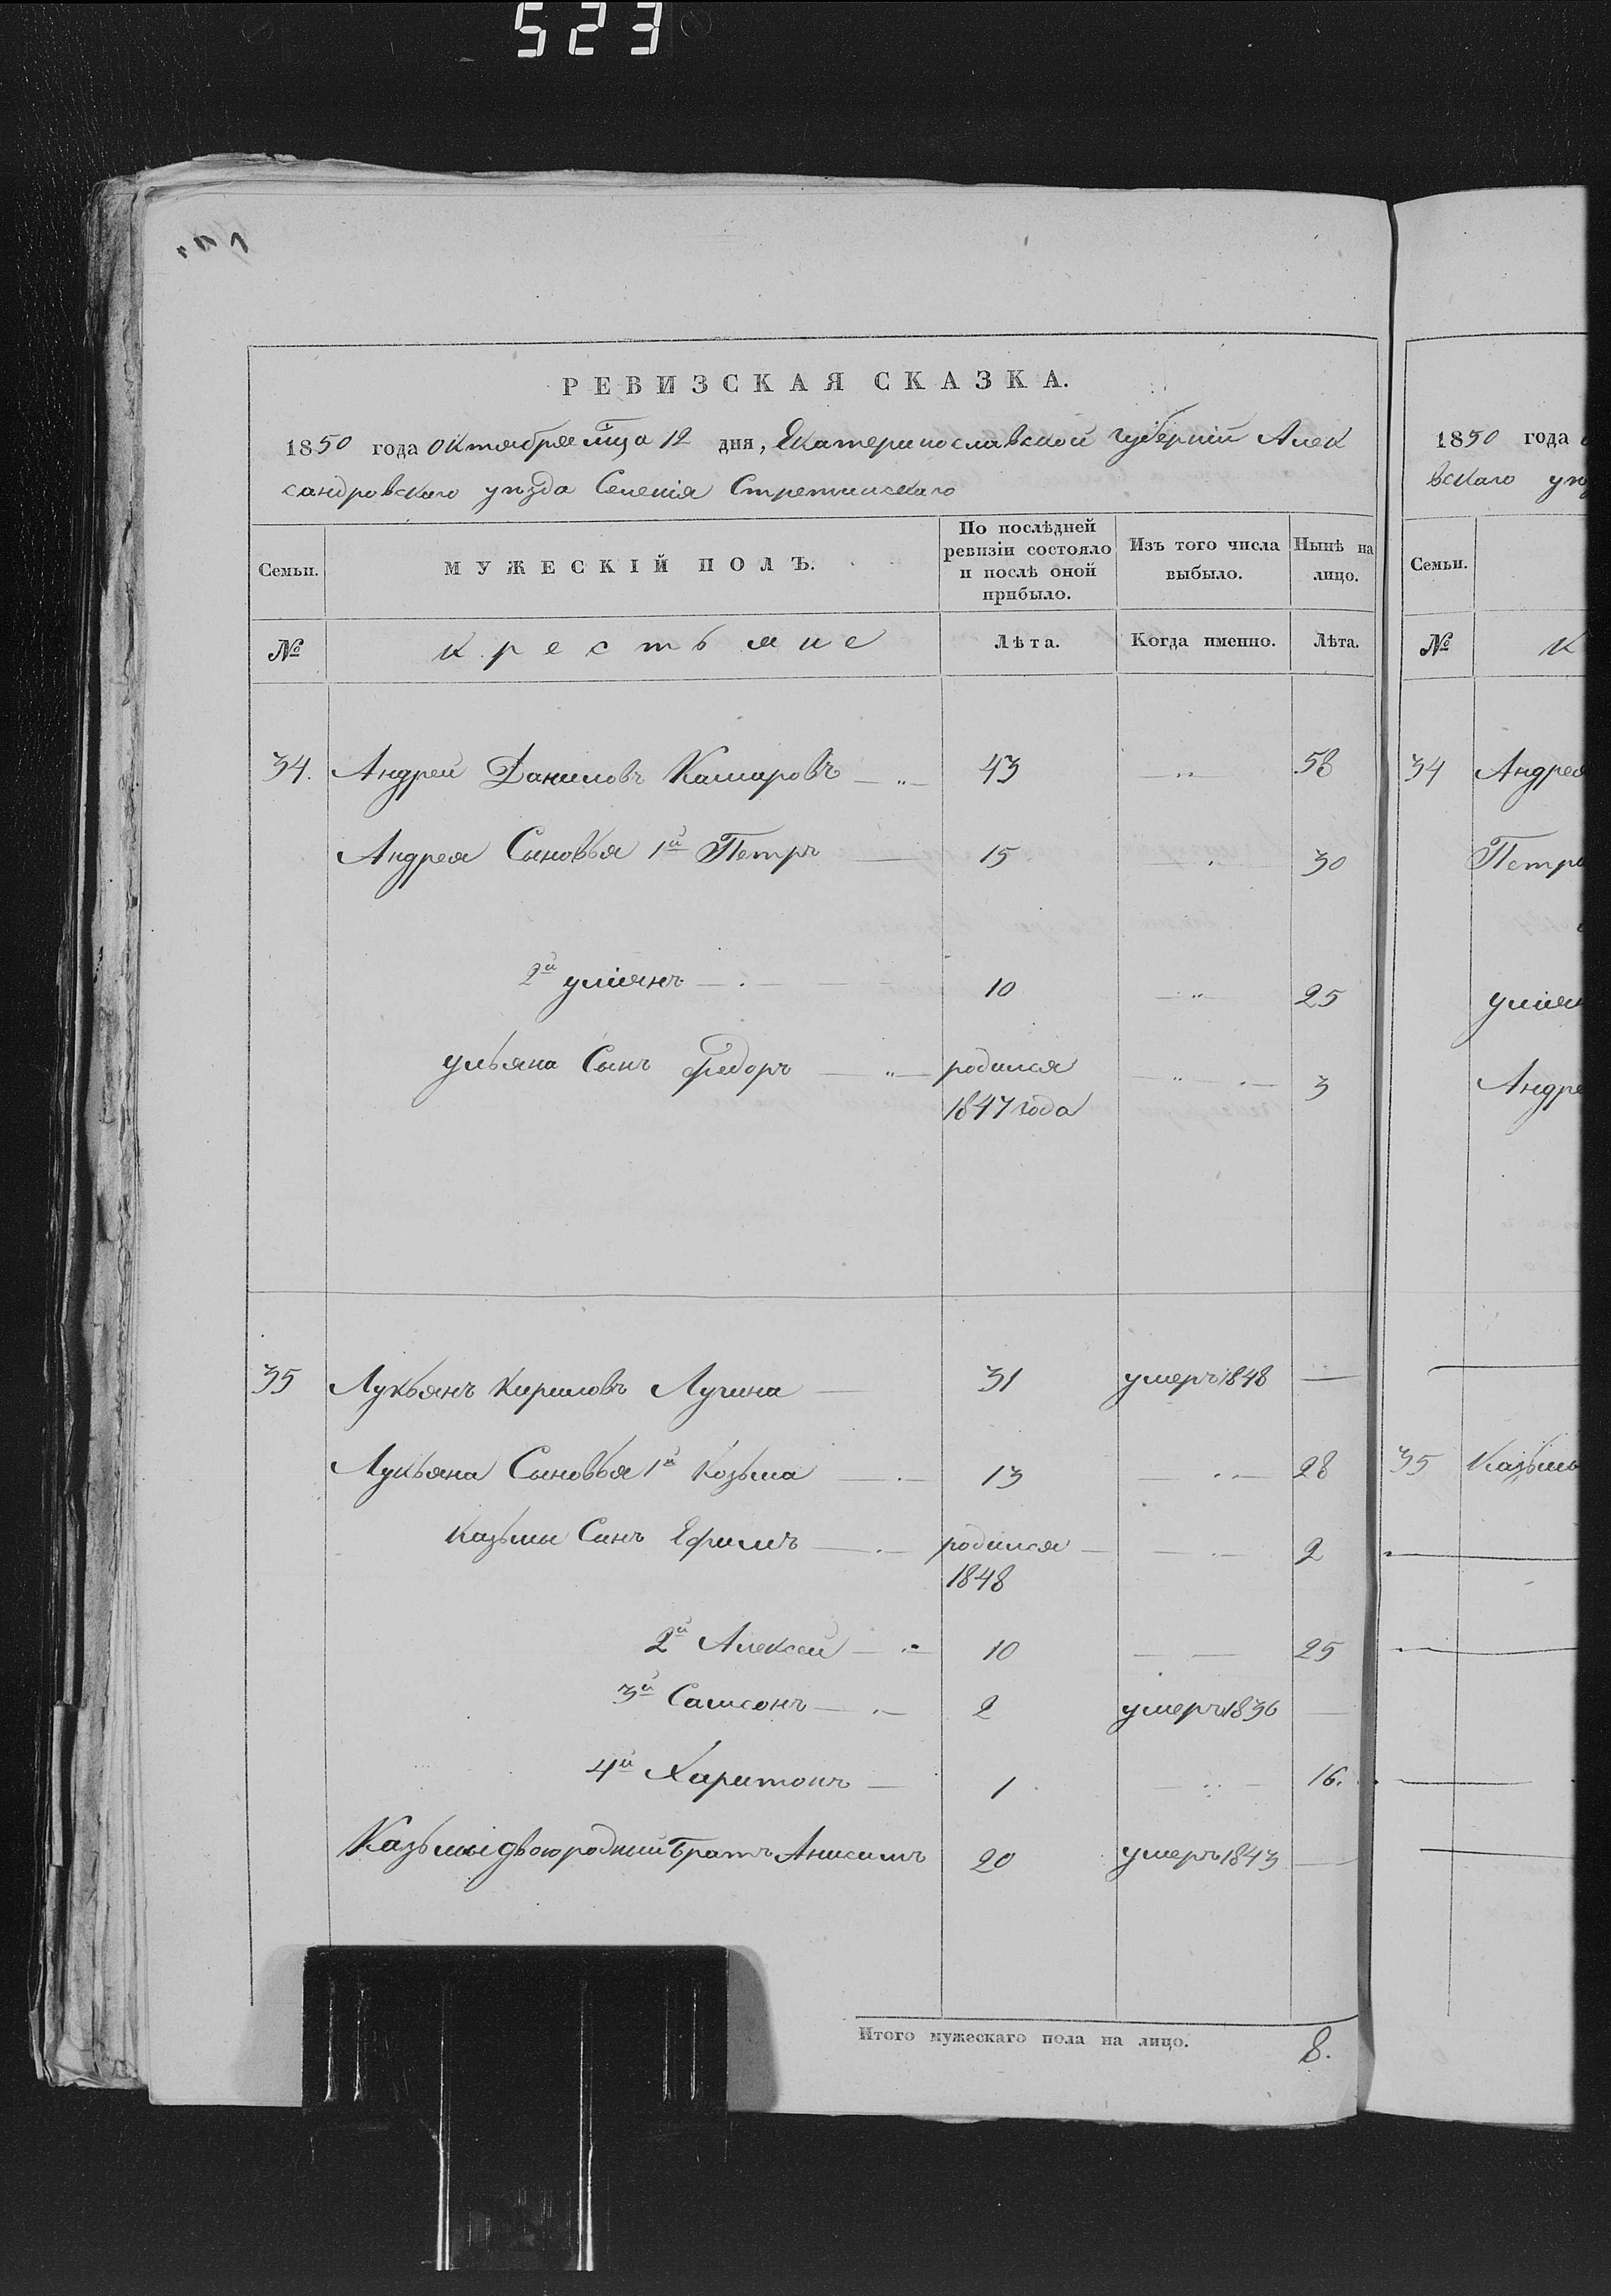 523
РЕВИЗСКАЯ СКАЗКА.
1850 года октября мца 12 дня, Екатеринославской губернiи Алек
сандровскаго уѣзда Селенiя Стретинскаго
Семьи.
МУЖЕСКIЙ ПОЛЪ.
По послѣдней ревизiи состояло и послѣ оной прибыло.
Изъ того числа выбыло.
Нынѣ на лицо.
№ крестьяне Лѣта. Когда именно. Лѣта.
34. Андрей Даниловъ Камаровъ — „ — 43 — „ 58
Андрея Сыновья 1й Петръ — 15 — . — 30
2й улiянъ — . — 10 — „ — 25
ульяна Сынъ Федоръ — „ — родился 1847 года — „ — . — 3
35 Лукьянъ Кириловъ Лучина — 31 умеръ 1848 —
Лукьяна Сыновья 1й Козьма — . — 13 — . — 28
Казьмы Синъ Ефимъ — . — родился 1848 — — . — 2
2й Алексей — „ — 10 — — 25
3й Самсонъ — . — 2 умеръ 1836 —
4й Харитонъ — 1 — : — 16.
Казьмы двоюродний Братъ Анисимъ 20 умеръ 1843 —
Итого мужескаго пола на лицо. 8.
1850 года
вскаго уѣз
Семьи.
№ К
34 Андрея
Петра
улiян
Андре
35 Казьмы